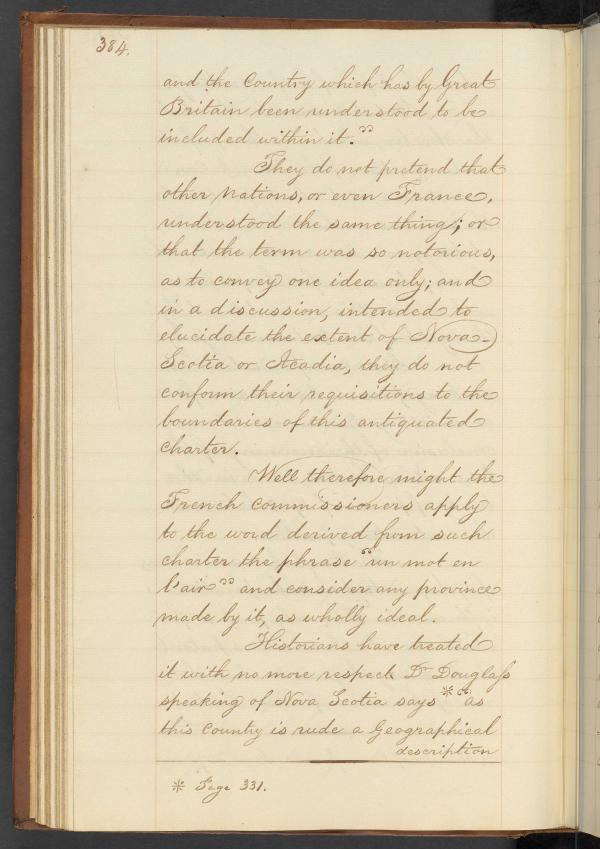 384.
and the Country which has by Great
Britain been understood to be
included within it."
They do not pretend that
other Nations, or even France,
understood the same thing; or
that the term was so notorious,
as to convey one idea only; and
in a discussion, intended to
elucidate the extent of Nova-
Scotia or Acadia, they do not
conform their requisitions to the
boundaries of this antiquated
charter.
Well therefore might the
French Commissioners apply
to the word derived from such
charter the phrase "un mot en
l'air" and consider any province
made by it, as wholly ideal.
Historians have treated
it with no more respect Dr Douglass
speaking of Nova Scotia says * "as
this Country is rude a Geographical
description
* Page 331.